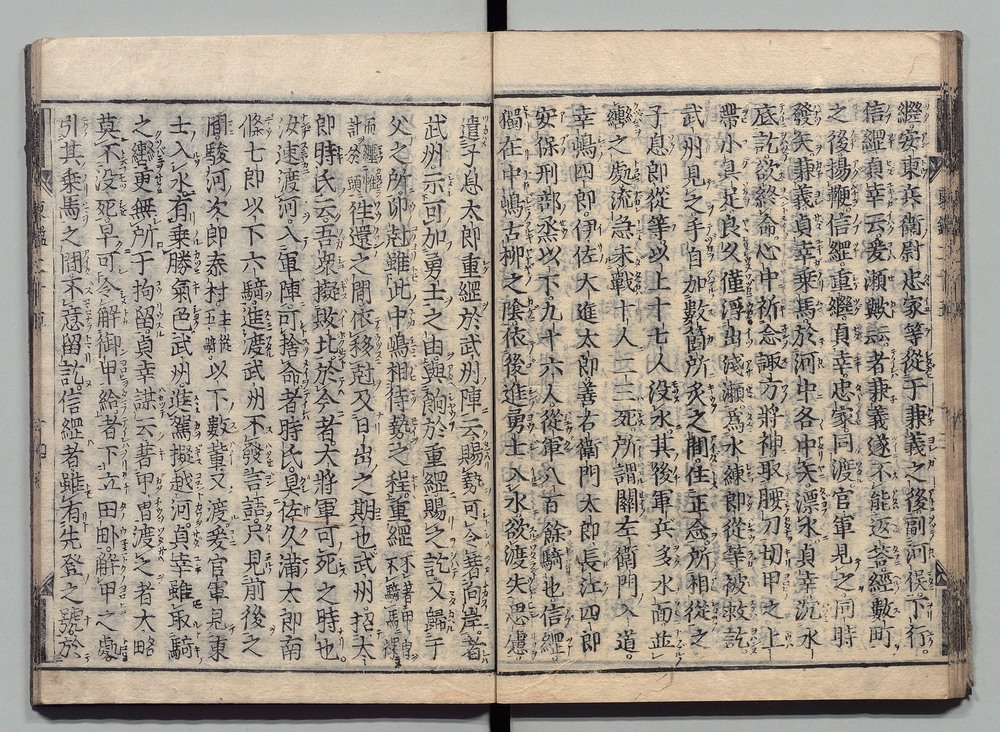 繼安東兵衛尉忠家等從于兼義之後副河俣下行。
信經貞幸云爰瀬歟云者兼義遂不能返答經數町
之後揚鞭信經重繼貞幸忠家同渡官軍見之同時
發矢兼義貞幸乘馬於河中各中矢漂水貞幸沉水
底訖欲終命心中祈念諏方將神取腰刀切甲之上
帶小具足良久僅浮出淺瀬爲水練郎從等被救訖
武州見之手自加數箇所灸之間住正念所相從之
子息郎從等以上十七人没水其後軍兵多水面並
轡之處流急未戰十人二三死所謂關左衞門入道。
幸嶋四郎。伊佐大進太郎善右衛門太郎長江四郎
安保刑部丞以下。九十六人從軍八百餘騎也信經。
獨在中嶋古柳之陰依後進勇士入水欲渡失思慮
遣子息太郎重經於武州陣云賜勢可令著向岸者
武州示可加勇士之由與餉於重經賜之訖又歸于
父之所卯尅雖此中嶋相待勢之程。重經不著甲冑不騎馬裸
而纏帷計於頭往還之間依移尅及日出之期也武州。招太
郎時氏云吾衆擬敗北於今者大將軍可死之時也
汝速渡河。入軍陣可捨命者時氏。具佐久滿太郎南
條七郎以下六騎進渡武州不發言語只見前後之
間駿河次郎泰村主從五騎。以下數輩又渡爰官軍見東
士入水。有乗勝氣色武州。進駕擬越河。貞幸雖取騎
之轡更無所于拘留貞幸謀云著甲冑渡之者大略
莫不没死。早可令解御甲給者下立田畝。解甲之處
引其乗馬之間不意留訖。信經者雖有先登之號於